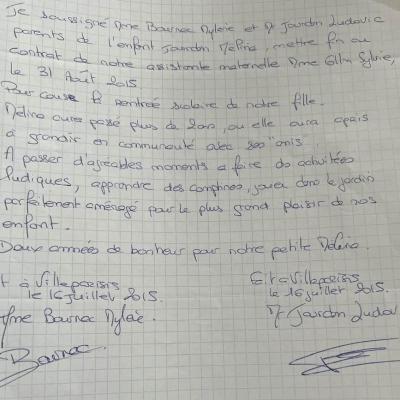 Je soussigné Mme Bournac Mylène et Mr Jourdon Ludovic
parents de l'enfant Jourdon Méline, mettre fin au
contrat de notre assistante maternelle Mme Sylvie,
le 31 Août 2015.
Pour cause la rentrée scolaire de notre fille.
Méline aura passé plus de 2ans, ou elle aura apais
à grandir en communauté avec ses "amis".
A passer d'agréables moments a faire des activitées
ludiques, apprendre des comptines, jouer dans le jardin
parfaitement aménagé pour le plus grand plaisir de nos
enfant.
Deux années de bonheur pour notre petite Méline.
t à Villeparisis
le 16 juillet 2015.
Mme Bournac Mylène.
Bournac
Fait à Villeparisis
le 16 juillet 2015.
Mr Jourdon Ludov